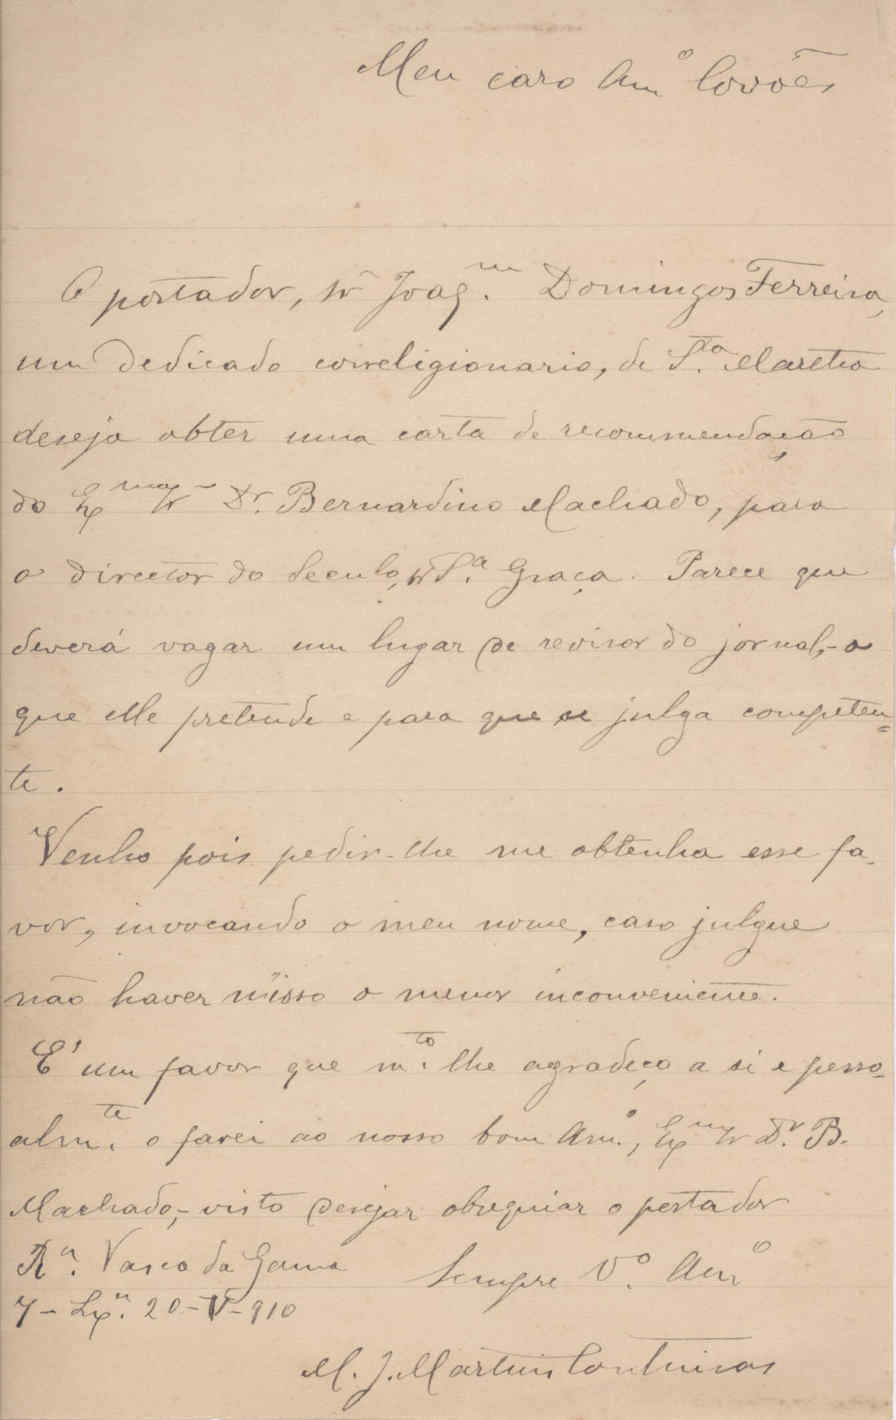 Meu caro Am.º Covões
O portador, Sr Joaq.m Domingos Ferreira,
um dedicado correligionario, de S.ta Martha
deseja obter uma carta de recommendação
do Ex.mo Sr Dr. Bernardino Machado, para
o director do Seculo, Sr S.a Graça. Parece que
deverá vagar um lugar de revisor do jornal, - o
que elle pretende e para que se julga competen=
te.
Venho pois pedir-lhe me obtenha esse fa-
vor, invocando o meu nome, caso julgue
não haver n'isso o menor inconveniente.
E' um favor que m.to lhe agradeço a si e pesso-
alm.te o farei ao nosso bom Am.º, Ex.mo Sr Dr. B.
Machado, - visto desejar obsequiar o portador
R.a Vasco da Gama
Sempre V.º Am.º
7 - Lx.a 20-V-910
M. J. Martins Contreiras